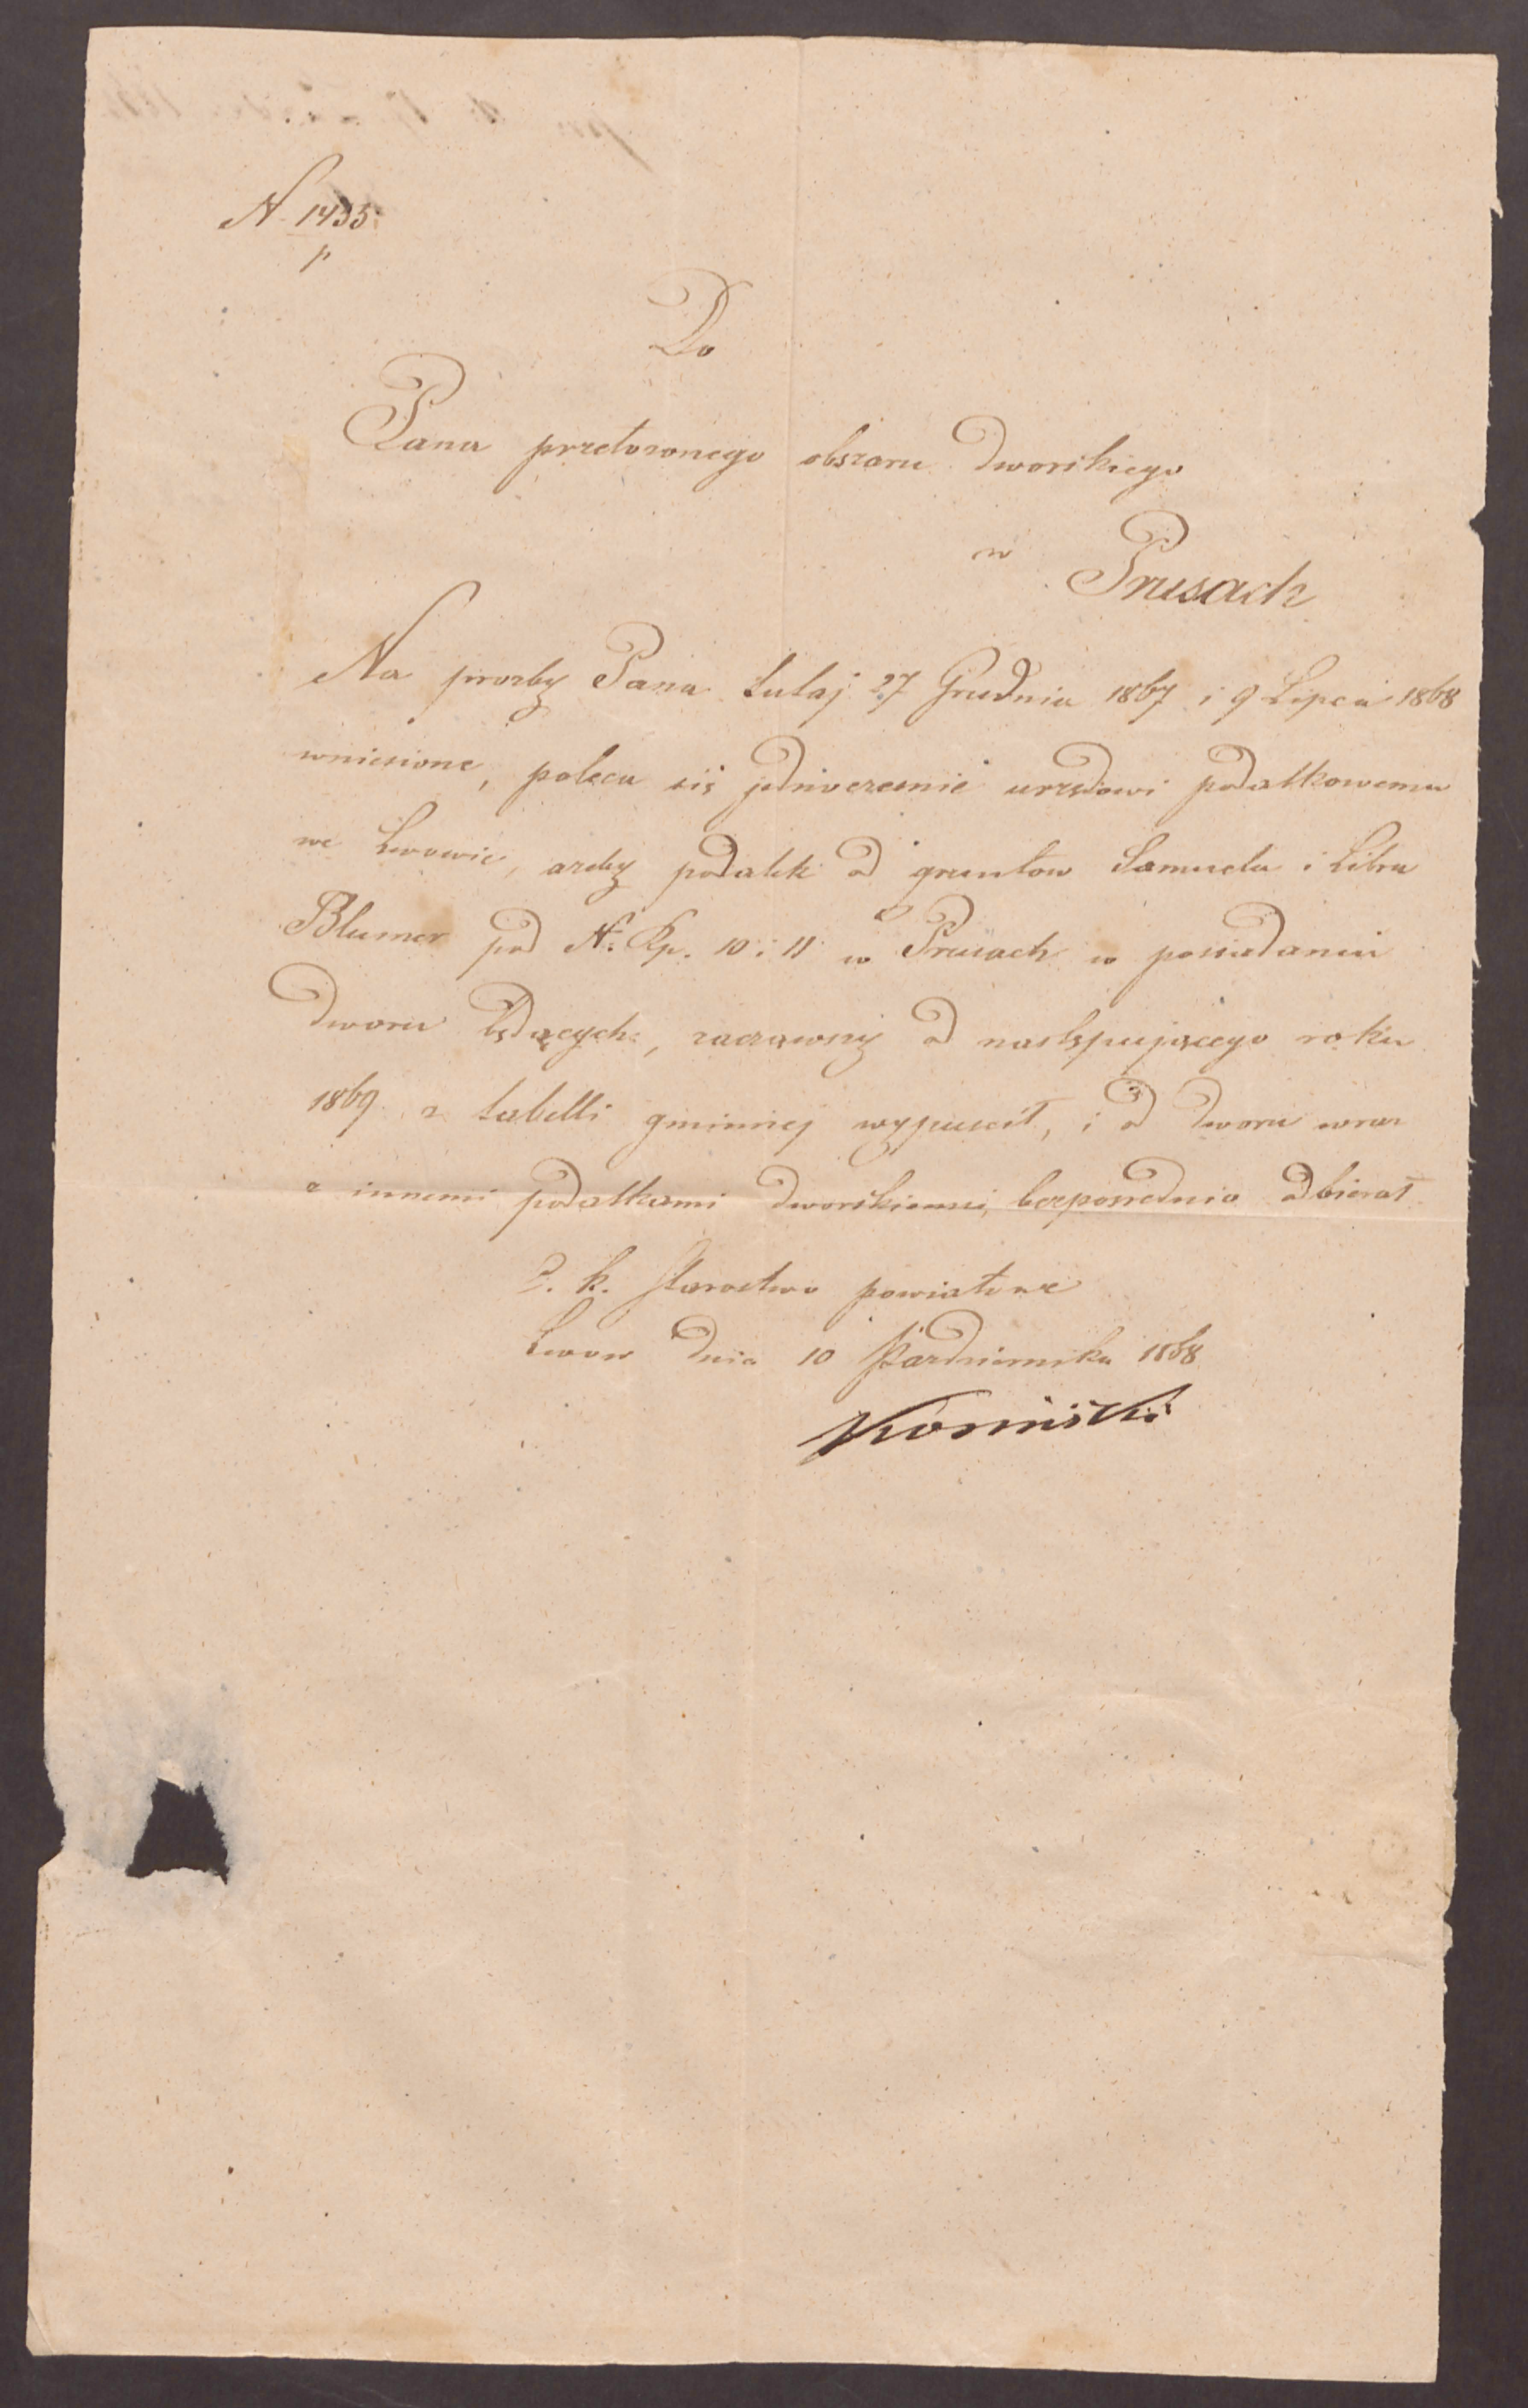 N 1435
p
Do
Pana przełożonego obszaru dworskiego
w
Prusach
Na prozby Pana tutaj 27 Grudnia 1867 i 9 Lipca 1868
wniesione, poleca się jednoczesnie urzędowi podatkowemu
we Lwowie, azeby podatek od gruntow Samuela i
Blumer pod N. Kp. 10 i 11 w Prusach w posiadaniu
dworu będących, zacząwszy od następującego roku
1869 z tabelli gminnej wypuscił, i od dworu wraz
z innemi podatkami dworskiemi, bezposrednio odbierał
C. k. Starostwo powiatowe
Lwow dnia 10 Pazdziernika 1868